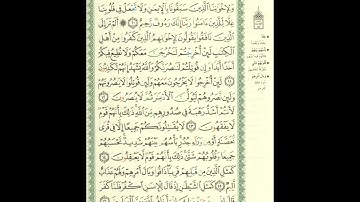 وَلِإِخْوَٰنِنَا ٱلَّذِينَ سَبَقُونَا بِٱلْإِيمَٰنِ وَلَا تَجْعَلْ فِى قُلُوبِنَا
غِلًّا لِّلَّذِينَ ءَامَنُوا۟ رَبَّنَآ إِنَّكَ رَءُوفٌ رَّحِيمٌ ۝ أَلَمْ تَرَ إِلَى
ٱلَّذِينَ نَافَقُوا۟ يَقُولُونَ لِإِخْوَٰنِهِمُ ٱلَّذِينَ كَفَرُوا۟ مِنْ أَهْلِ
ٱلْكِتَٰبِ لَئِنْ أُخْرِجْتُمْ لَنَخْرُجَنَّ مَعَكُمْ وَلَا نُطِيعُ فِيكُمْ
أَحَدًا أَبَدًا وَإِن قُوتِلْتُمْ لَنَنصُرَنَّكُمْ وَٱللَّهُ يَشْهَدُ إِنَّهُمْ لَكَٰذِبُونَ
۝ لَئِنْ أُخْرِجُوا۟ لَا يَخْرُجُونَ مَعَهُمْ وَلَئِن قُوتِلُوا۟ لَا يَنصُرُونَهُمْ
وَلَئِن نَّصَرُوهُمْ لَيُوَلُّنَّ ٱلْأَدْبَٰرَ ثُمَّ لَا يُنصَرُونَ ۝
لَأَنتُمْ أَشَدُّ رَهْبَةً فِى صُدُورِهِم مِّنَ ٱللَّهِ ذَٰلِكَ بِأَنَّهُمْ قَوْمٌ
لَّا يَفْقَهُونَ ۝ لَا يُقَٰتِلُونَكُمْ جَمِيعًا إِلَّا فِى قُرًى
مُّحَصَّنَةٍ أَوْ مِن وَرَآءِ جُدُرٍۭ بَأْسُهُم بَيْنَهُمْ شَدِيدٌ تَحْسَبُهُمْ
جَمِيعًا وَقُلُوبُهُمْ شَتَّىٰ ذَٰلِكَ بِأَنَّهُمْ قَوْمٌ لَّا يَعْقِلُونَ ۝
كَمَثَلِ ٱلَّذِينَ مِن قَبْلِهِمْ قَرِيبًا ذَاقُوا۟ وَبَالَ أَمْرِهِمْ وَلَهُمْ عَذَابٌ
أَلِيمٌ ۝ كَمَثَلِ ٱلشَّيْطَٰنِ إِذْ قَالَ لِلْإِنسَٰنِ ٱكْفُرْ فَلَمَّا كَفَرَ